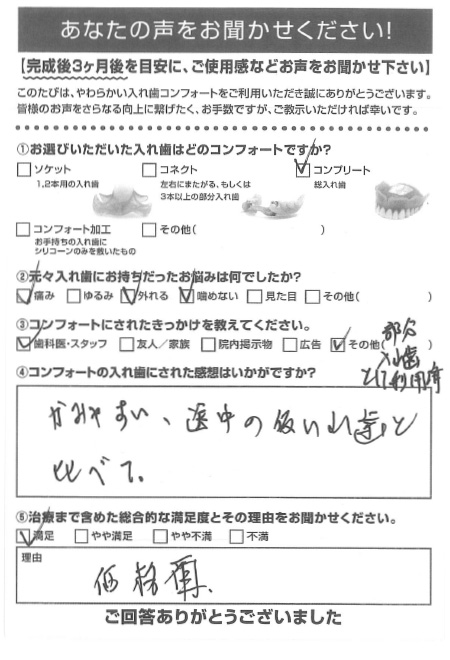 あなたの声をお聞かせください!
【完成後3ヶ月後を目安に、ご使用感などお声をお聞かせ下さい】
このたびは、やわらかい入れ歯コンフォートをご利用いただき誠にありがとうございます。
皆様のお声をさらなる向上に繋げたく、お手数ですが、ご教示いただければ幸いです。
①お選びいただいた入れ歯はどのコンフォートですか?
ソケット
1,2本用の入れ歯
コネクト
左右にまたがる、もしくは
3本以上の部分入れ歯
コンプリート
総入れ歯
コンフォート加工
お手持ちの入れ歯に
シリコーンのみを敷いたもの
その他( )
②元々入れ歯にお持ちだったお悩みは何でしたか?
痛み ゆるみ 外れる 噛めない 見た目 その他( )
③コンフォートにされたきっかけを教えてください。
歯科医・スタッフ 友人/家族 院内掲示物 広告 その他(
部分
入れ歯
として利用済
④コンフォートの入れ歯にされた感想はいかがですか?
かみやすい、途中の仮い入れ歯と
比べて。
⑤治療まで含めた総合的な満足度とその理由をお聞かせください。
満足 やや満足 やや不満 不満
理由
価格面、
ご回答ありがとうございました